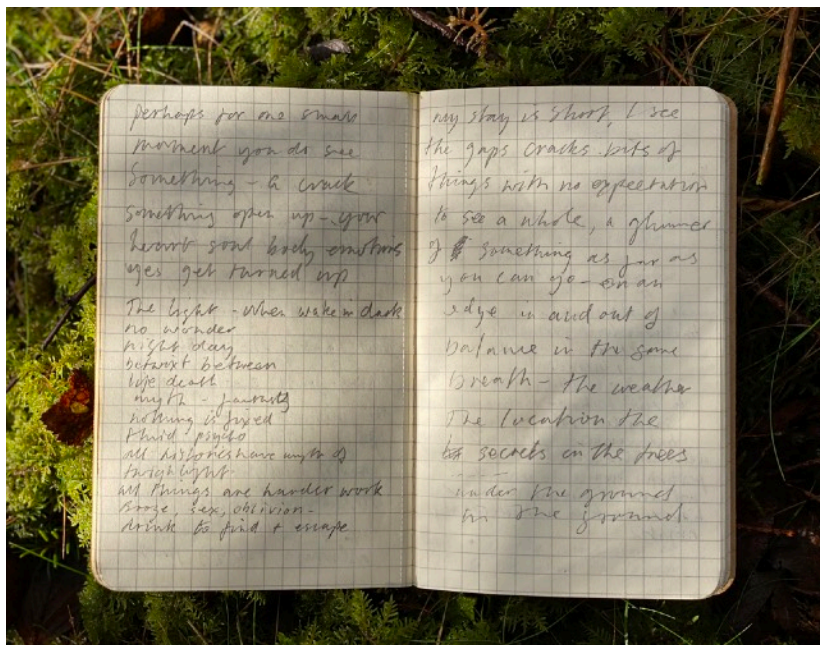 perhaps for one small
moment you do see
Something - a crack
something open up - your
heart soul body emotions
eyes get turned up
The light - when wake in dark
no wonder
night day
betwixt between
life death
myth -
nothing is fixed
fluid psycho
all histories have myth of
twighlight.
all things are harder work
Booze, sex, oblivion -
drink to find + escape
my stay is short, I see
the gaps cracks bits of
things with no expectation
to see a whole, a glimmer
of something as far as
you can go - on an
edge in and out of
balance in the same
breath - the weather
The location the
secrets in the trees
under the ground
in the ground